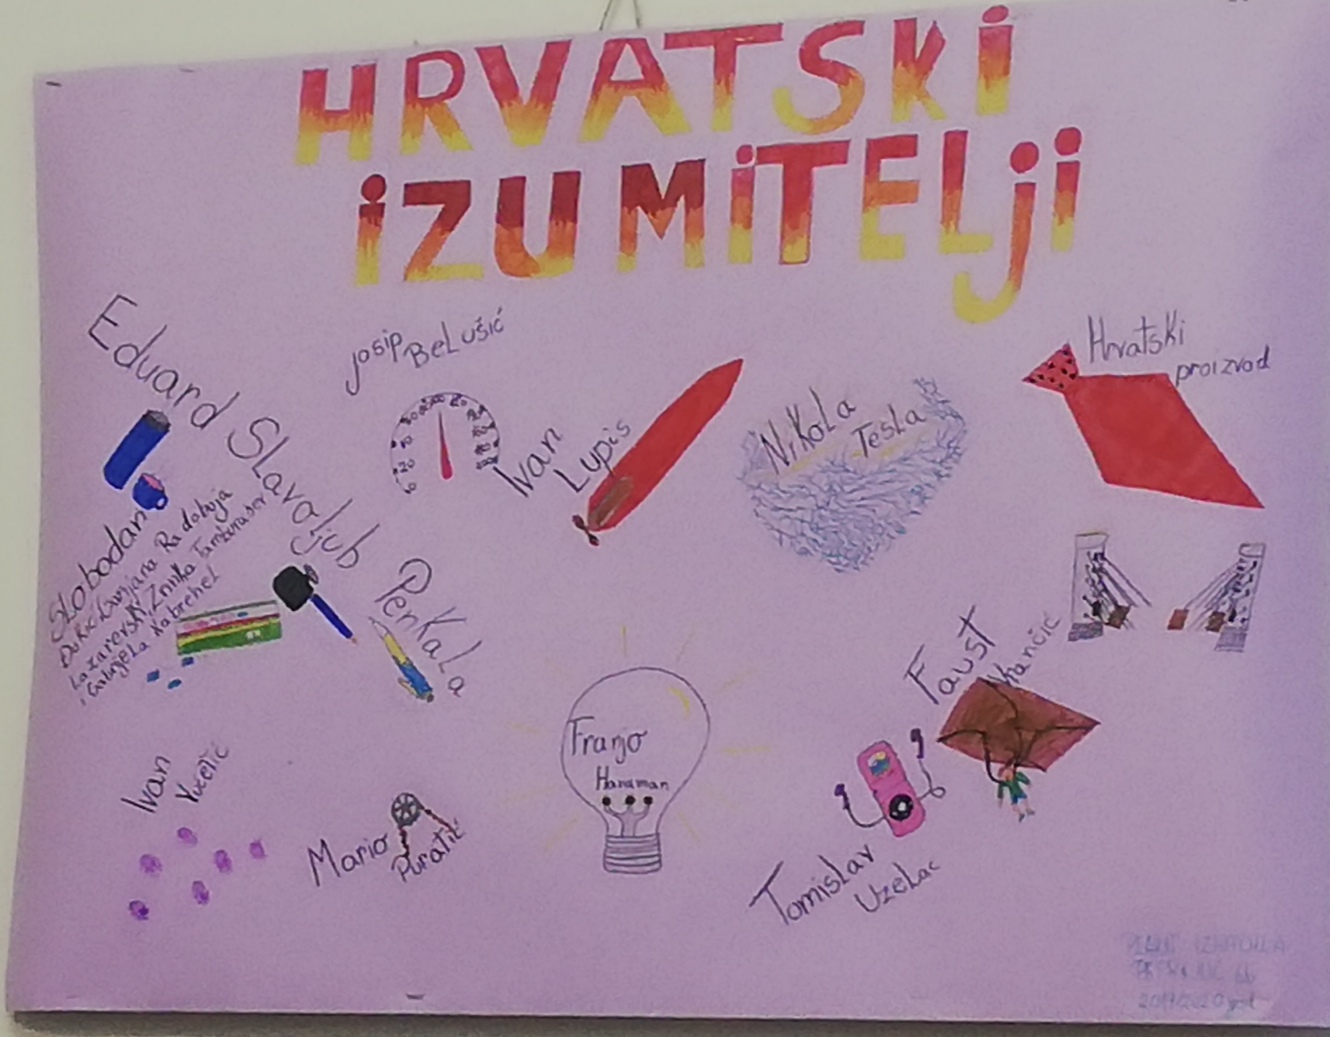 HRVATSKI
IZUMITELJI
Eduard Slavoljub Penkala
Josip Belušić
0 20
Ivan
Lupis
Nikola
Tesla
Hrvatski
proizvod
Slobodan
Lazarevski, Zrinka Tamburašev
i Gabrijela Kobrehel
Faust
Vrančić
Franjo
Hanaman
Ivan
Vučetić
Mario
Puratić
Tomislav
Uzelac